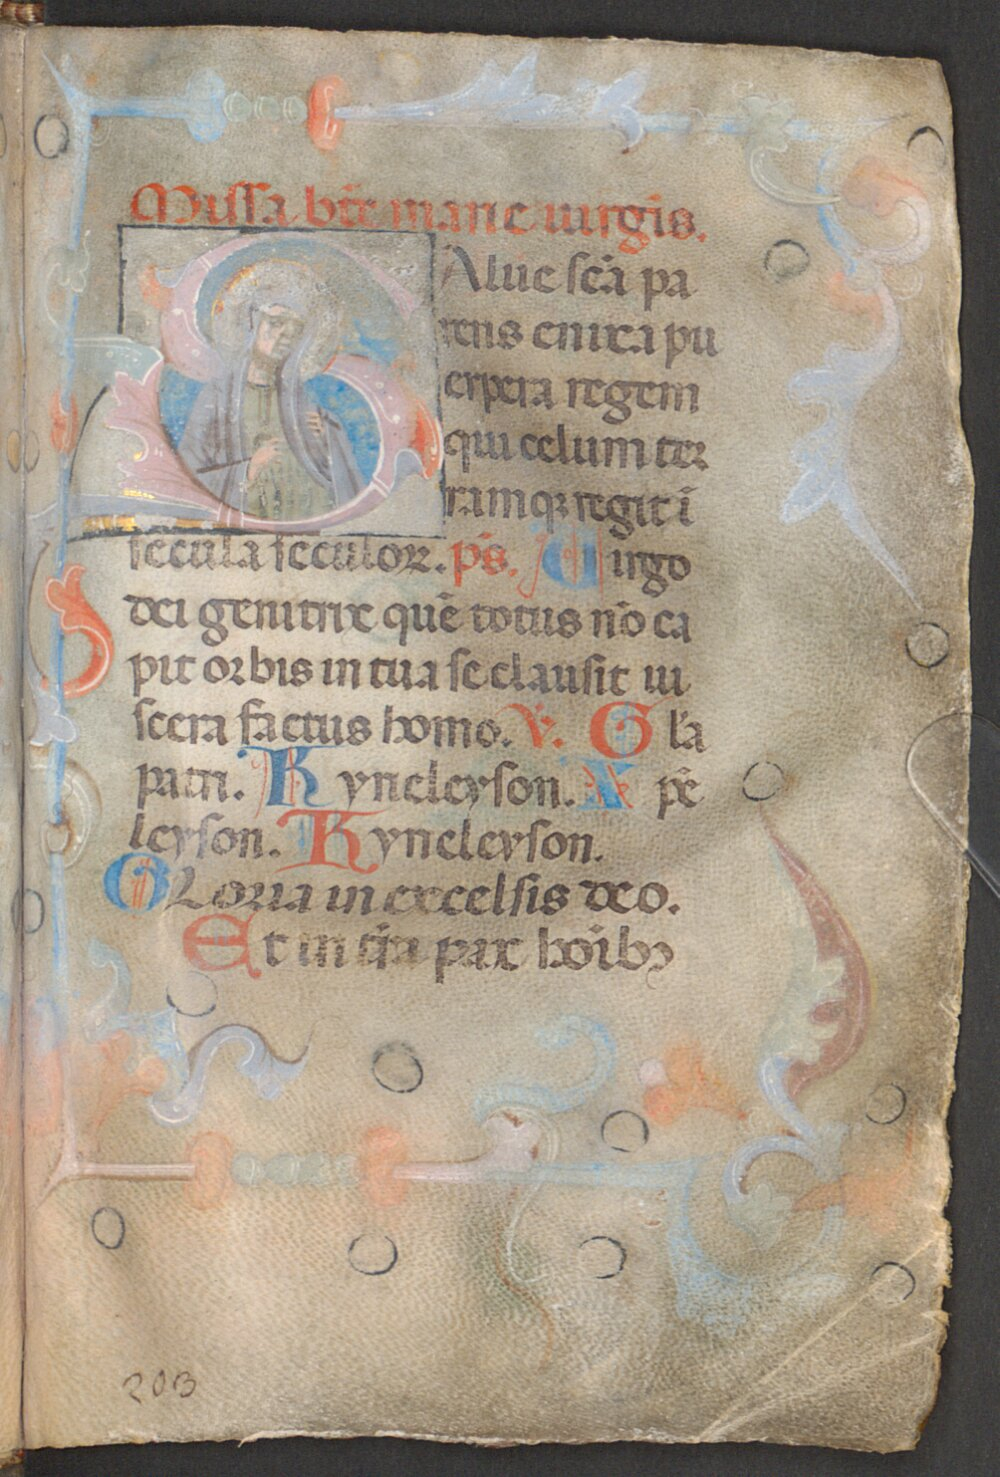 Missa bt̄e marie uirgīs.
SAlue sc̄a pa
rens enixa pu
erpera regem
qui celum ter
ramqꝫ regit ī
secula seculoꝝ. ps̄. Uirgo
dei genitrix quē totus nō ca
pit orbis in tua se clausit ui
scera factus homo. V̄. Gl̄a
patri. Kyrieleyson. Xpē
leyson. Kyrieleyson.
GLoria in excelsis deo.
Et in tr̄a pax hōibꝫ
203